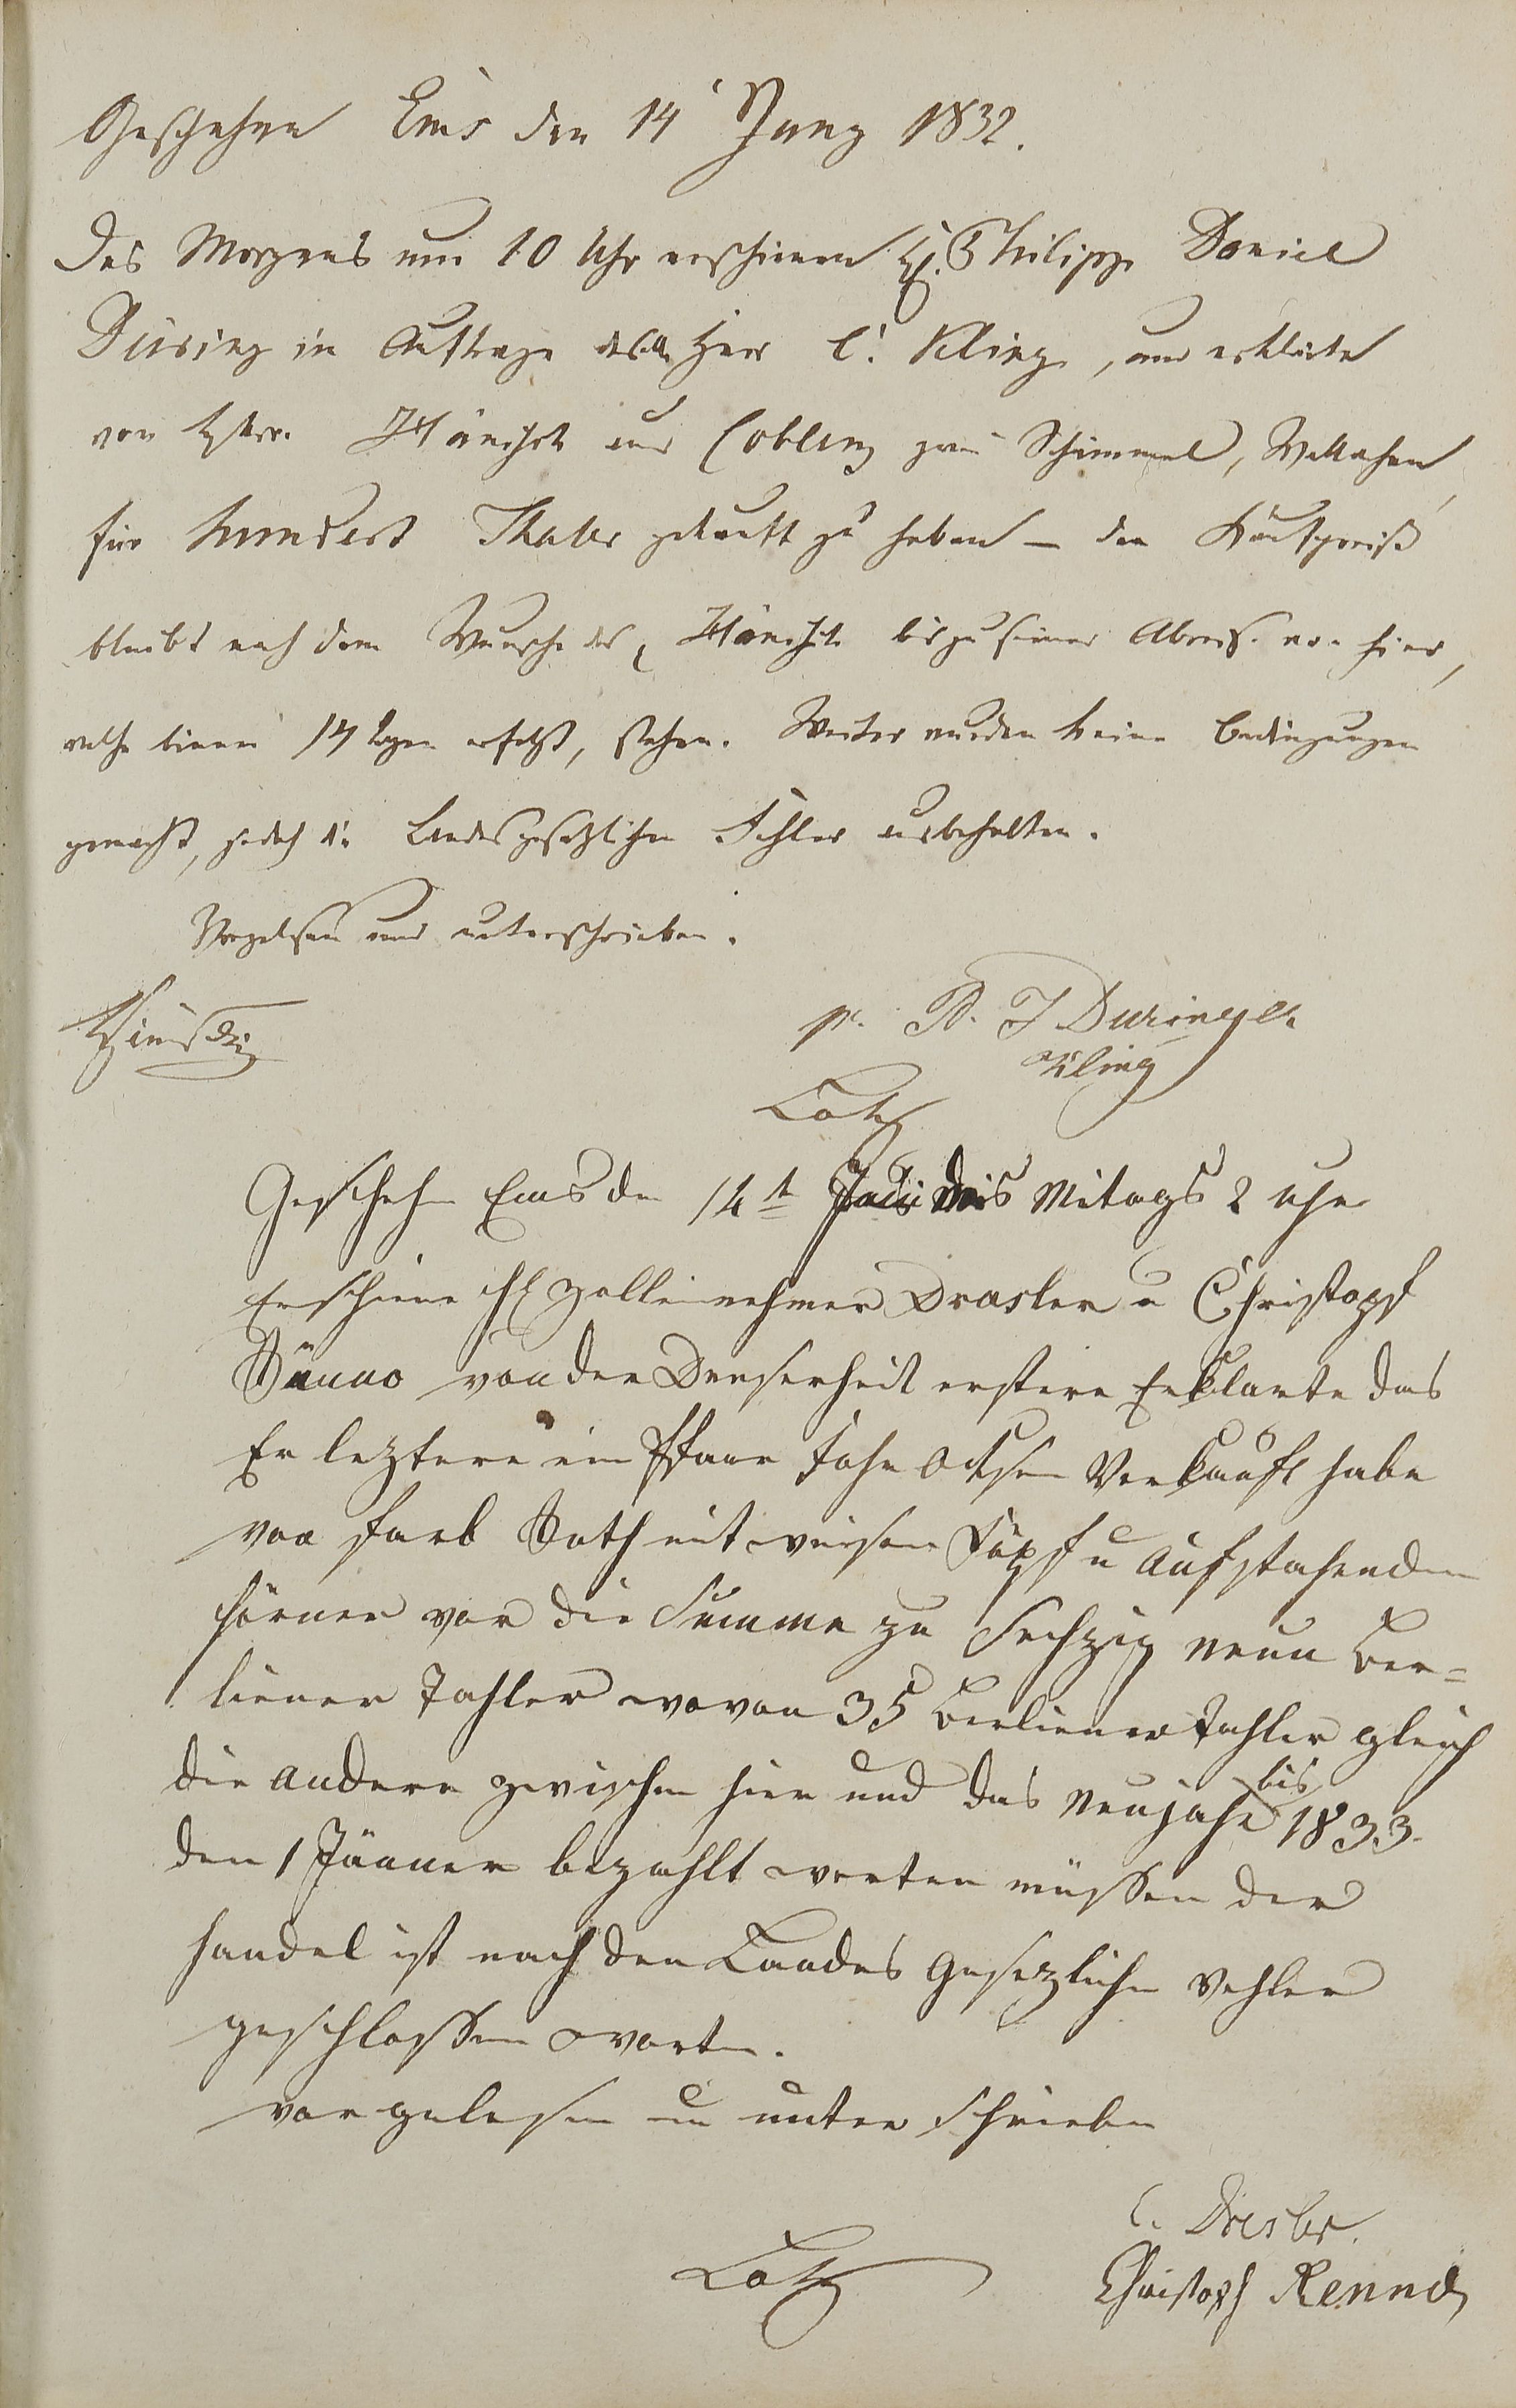 Geschehen Ems den 14 Juny 1832.
Des Morgens um 10 Uhr erschienen H. Philipp Daniel
Düring im Auftrage des Herr C. Kling, und erklärte
von Herr. Hänisch aus Coblenz zwei Schimmel, Wallachen,
für hundert Thaler gekauft zu haben – der Kaufpreiß
bleibt nach dem Wunsche des Hänisch bis zu seiner Abreise von hier,
welche binnen 14 Tagen erfolgt, stehen. Weiter wurden keine Bedingungen
gemacht, jedoch die Landesgesetzlichen Fehler ausbehalten.
Vorgelesen und unterschrieben.
pr. P. D Duringer
Kling
Lotz
Geschehn Ems den 14t Juni des Mitags 2 uhr
Erschiene H Zolleinnehmer Drasler u Christopf
Ränno von der Denserheit erstere Erklarte das
Er leztere ein Pfaar Fahr Ochsen Verkauft habe
von farb Roth mit weisen Köpf u Aufstahenden
hörner vor die Summa zu Sechzig neun Ber=
liener Tahler wovon 35 Berliener Tahler gleich
die andere zwischen hier und das neujahr bis 1833
den 1 Jänner bezahlt werten müssen der
handel ist nach den Landes Gesezlichen Vehler
geschlossen worten.
vor gelesen un unter schrieben
C. Dresler.
Lotz
Christoph Renno